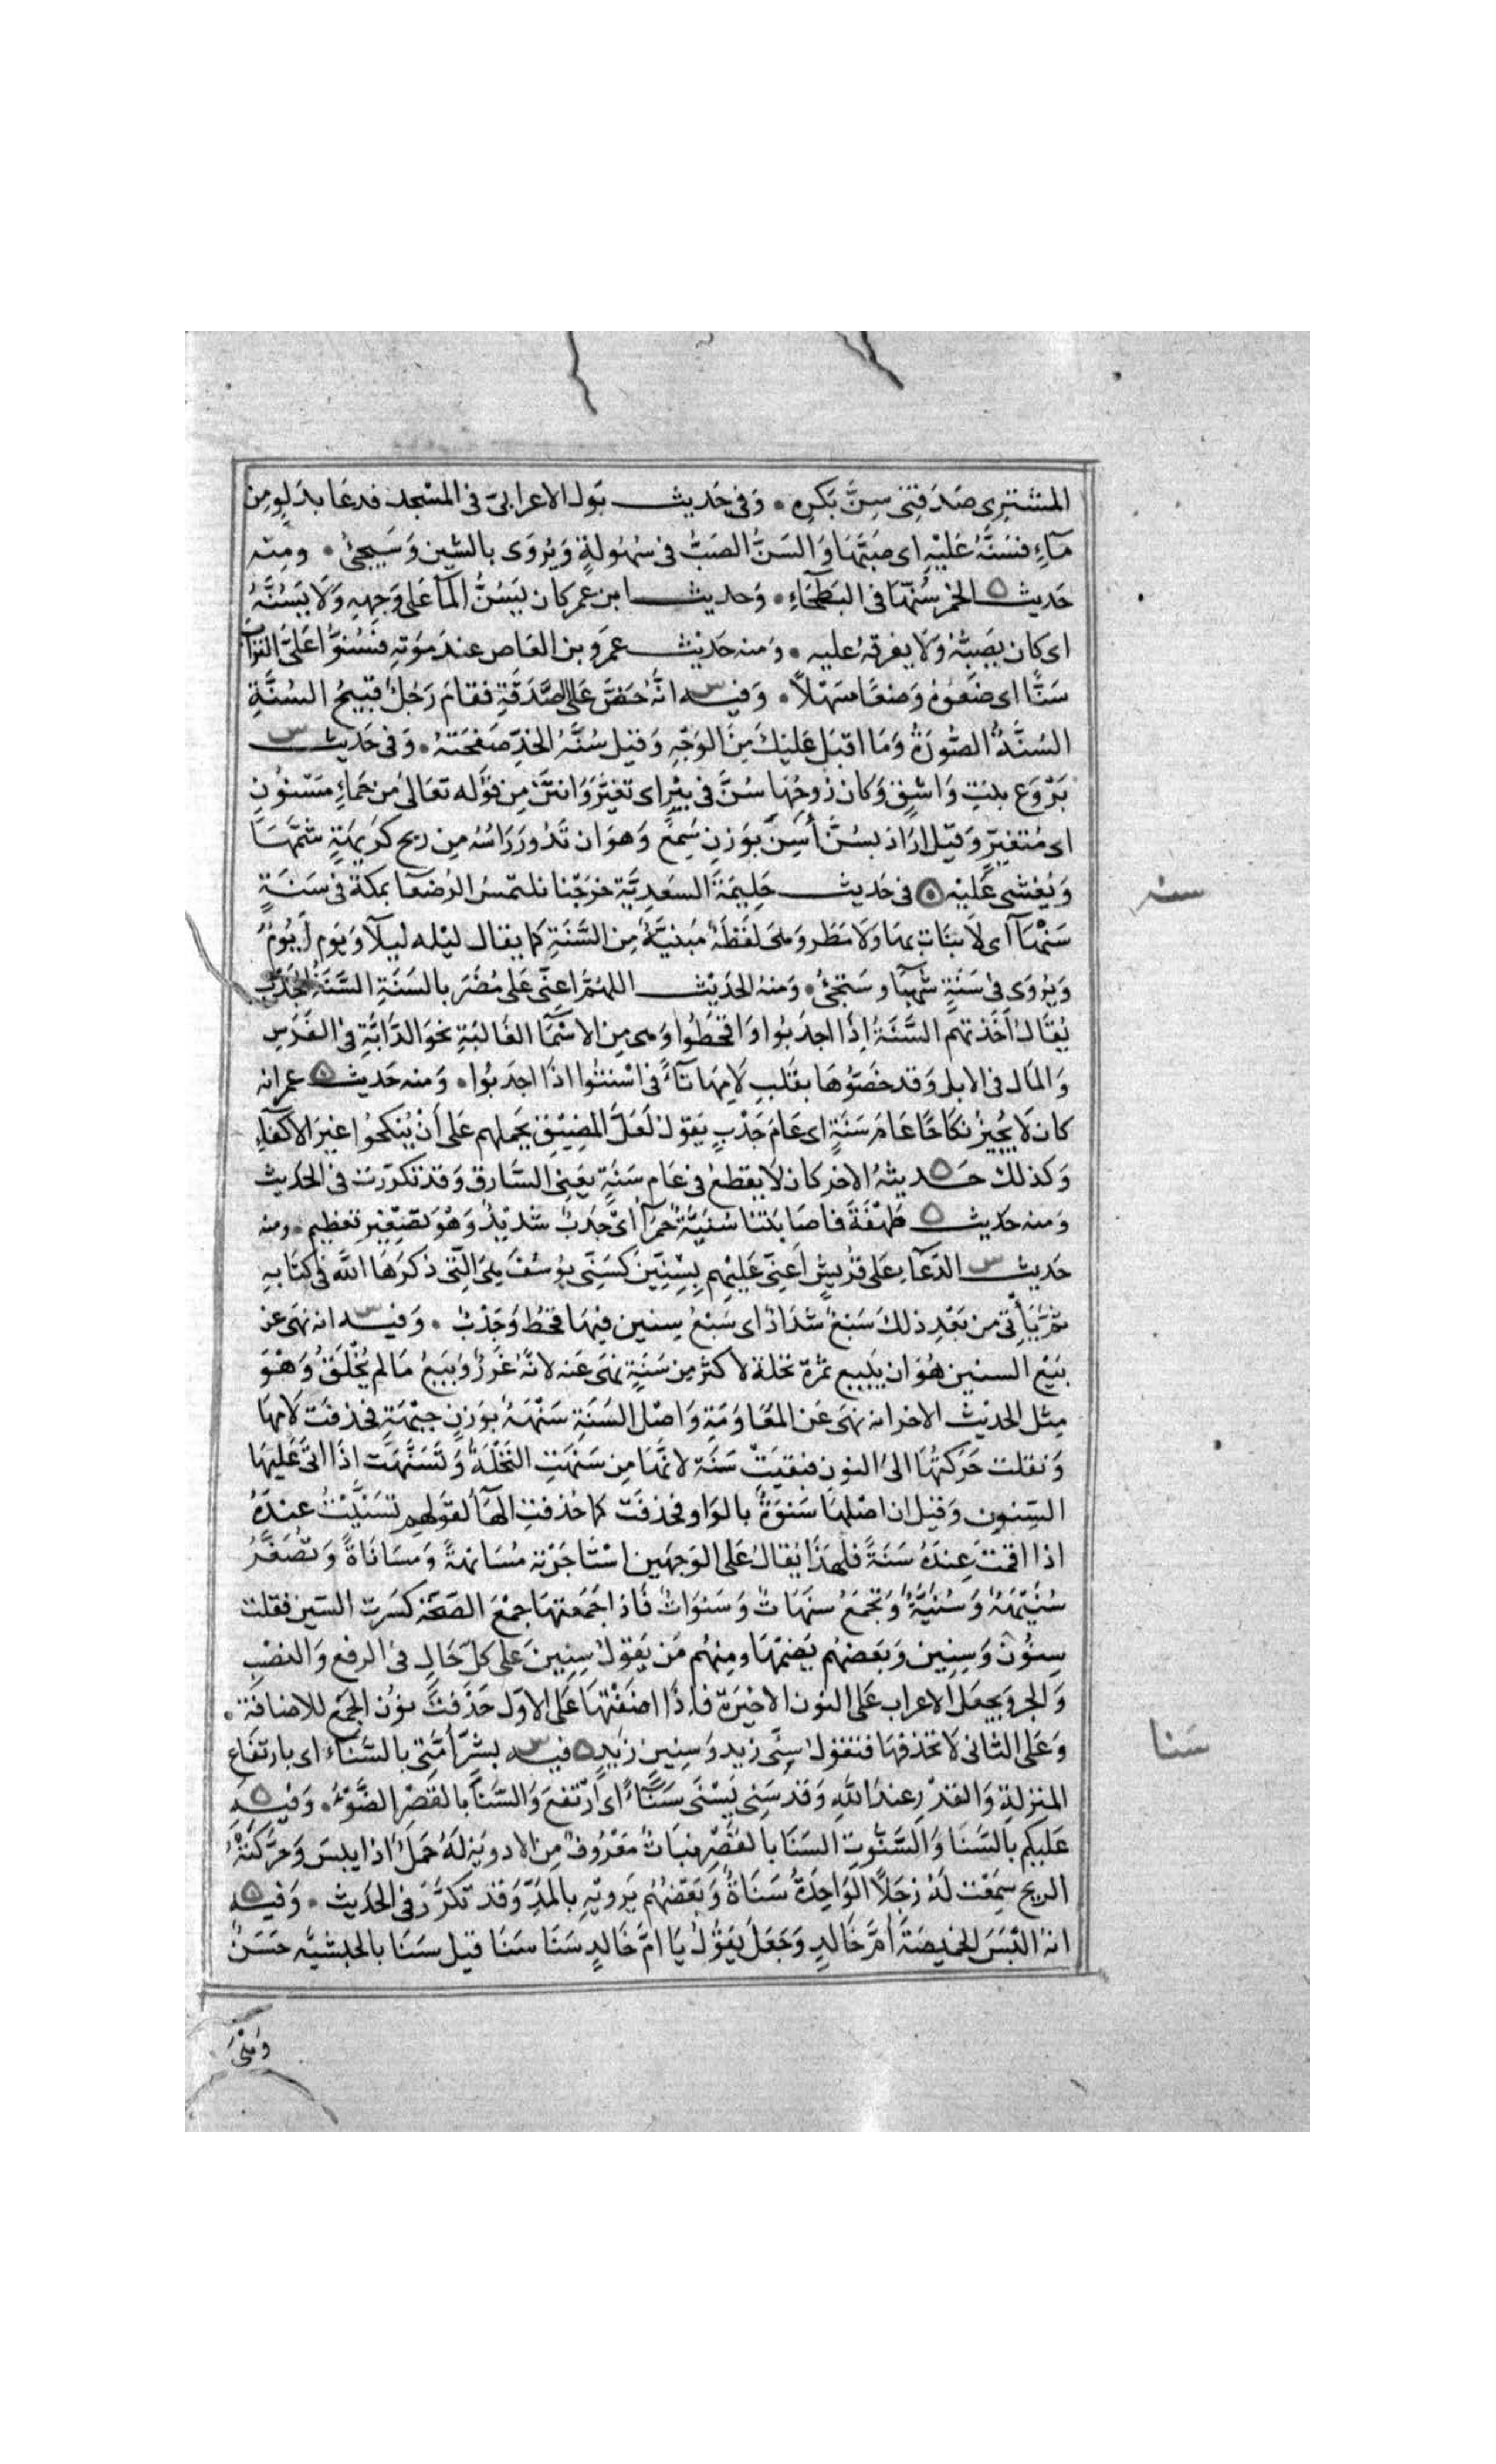 المشترى صَدَقتِى سِنَّ بَكرِه ۰ وَفى حَديث بَول الاعرابىّ فى المسْجد فدعَا بدَلوٍ مِن
مآءٍ فسَنَّهُ عَليْهِ اى صَبَّهَا وَالسَنُّ الصَبُّ فى سُهُولةٍ وَيُروَى بالشين وَسَيجىُٔ ۰ ومنه
حَديث الخمر سُنَّهَا فى البَطحَآءِ ۰ وَحديث ابن عمر كان يَسُنُّ المآ عَلى وَجهِهِ وَلَا يَسُنُّهُ
اى كان يَصَبُّهُ وَلَا يفرقهُ عليه ۰ وَمنه حَديث عمرو بن العَاص عندَ مَوَتهِ فسُنوُّا عَلىَّ التراب
سَنًّا اى ضَعُوهُ وَضعًا سَهْلاً ۰ وَفيه انَّهُ حَضَّ عَلى الصَّدَقَةِ فقامَ رَجُلٌ قبيحُ السُنَّةِ
السُنَّةُ الصُّورَةُ وَمَا اقبَل عَليْكَ مِنَ الوَجْهِ وَقيل سُنَّهُ الخدِّ صَفحَتهُ ۰ وَفى حَديث
بَرْوَع بنتِ وَاشقٍ وَكان زوجُهَا سُنَّ فى بيْرٍ اى تغيَّرَ وَانتنَ مِن قوْله تعَالىٰ من حَماءٍ مَسْنوُنٍ
اى مُتغيِّرٍ وَقيْل ارَادَ بسُنَّ أسِنَ بوَزنِ سَمِعَ وَهوَ ان تَدُورَ رَاسُهُ مِن ريحٍ كرَيهَةٍ شمَّهَا
وَيُغشى عَليْه فى حَديث حَليمَةَ السَعدِيَّةِ خرَجْنا نلتمسُ الرُضعَآ بمكة فى سَنَةٍ
سَنْهَآ اى لَا نبَاتَ بهَا وَلَا مَطر وَهىَ لفَظةٌ مَبنيَّةٌ مِن السَّنَةِ كما يقال ليْلة ليلآ وَيَوم أيوَمُ
وَيُروَى فى سَنَةٍ شهبآ وسَتجىُٔ ۰ وَمنهُ الحَديْث اللهُمَّ اعِنّى عَلى مُضَرَ بالسَنَةِ السَّنَةُ الجَدَب
يُقَالُ أخَذتهم السَّنَةُ إذَا اجدَبُوا وَاقحَطُوا وَهى مِن الاسْمَآ الغَالبَةِ نحوَ الدَّابَّةِ فى الفرَسِ
وَالمَال فى الابل وَقد خَصّوُهَا بقَلبِ لَامِهَا تآءً فى اسْنتوُا اذَا اجدَبُوا ۰ وَمنه حَديث عمرانه
كان لَا يُجيزُ نكاحًا عَامَ سَنَةٍ اى عَامَ جَدْبٍ يَقولُ لعَلَّ الضيْقَ يحَملهم عَلى أنْ يُنكحُوا غيرَ الاكفآءِ
وَكذلكَ حَديثهُ الاخر كان لَا يقطعُ فى عَامِ سَنَةٍ يَعنى السَّارقَ وَقد تكرّرَت فى الحديث
وَمنه حَديث طهْفَةَ فاصَابَتنا سُنيَّةٌ حَمرَآ اىْ جَدبٌ شديْدٌ وَهْوَ تصْغيْر تعظيم ۰ ومنه
حَديث الدّعآءِ عَلى قرُيشٍ اعِنّى عَليْهم بِسنِيْنَ كسِنّى يوُسُفَ هىَ الّتى ذكرَهَا اللهُ فى كتابهِ
ثمَّ يَأتى من بَعْدِ ذلكَ سَبْعٌ شدَادٌ اى سَبْعُ سِنين فيهَا قحطٌ وَجَدْبٌ ۰ وَفيه انه نهى عن
بَيْع السنين هُوَ ان يَبيعَ ثمرة نخلهٖ لاكثر مِن سَنَةٍ نهَى عَنه لانّهُ غَررٌ وَبَيعُ مَا لم يُخْلَقُ وَهْوَ
مِثل الحديْث الاخر انه نهَى عَن المُعَاوَمَةِ وَاصْل السَنَةِ سَنْهَةُ بوَزنِ جبْهَةٍ فحذفَت لامهَا
وَنقلت حَرَكتُهَا الى النون فبقيَتْ سَنَة لانَّهَا مِن سَنهَتِ النَّخلَةُ وَتَسَنَّهَت اذَا اتىَ عَليْهَا
السّنون وَقيْل ان اصْلهَا سَنوَةٌ بالوَاو فحذفَت كما حُذفتِ الهآءُ لقوَلهم تسَنَّيْتُ عنْدَهُ
اذا اقمتَ عِندَهُ سَنَةً فلهذا يُقالُ عَلى الوَجهَين اسْتَاجَرْته مُسَانهةً وَمسَانَاةً وَتصُغَّرُ
سُنَيْهَةٌ وَسُنيَّةٌ وَتجمَعُ سنَهَاتٌ وَسَنوَاتٌ فَاذا جَمَعتهَا جمْعَ الصّحَة كسَرت السّين فقلت
سِنوُنَ وَسِنِين وَبَعضهُم يَضمّهَا ومِنهُم مَن يَقوْلُ سِنِينَ عَلى كلّ حَالٍ فى الرفع وَالنصْبِ
وَالجر وَيجعَل الاعراب عَلى النون الاخيْرَة فاذَا اضَفْتهَا عَلى الاوّل حَذَفتَ نوُن الجَمْع للاضافَة ۰
وَعَلى الثانى لَا تحَذفهَا فتقوْلُ سِنّى زيد وَسِنين زَيْدٍ فيه بشرْ أمَّتى بالسَّنآءِ اى بارتفَاع
المنزلةِ وَالقدْرِ عندَ اللهِ وَقد سَنِى يَسْنَى سَنَآءً اى ارْتفعَ وَالسَّنا بالقَصْر الضَوْءُ ۰ وَفيْه
عَليكم بالسَنَا وَالسَّنوُّتِ السَنَا بالقصْر نبَاتٌ مَعْرُوفٌ مِن الادويَة لَهُ حَملٌ اذا يبسَ وَحرَّكتهُ
الريح سَمِعْتَ لَهُ زجَلاً الوَاحِدَةُ سَنَاةٌ وَبَعْضُهُم يَرويْهِ بالمَدِّ وَقدْ تكرّرَ فى الحَديث ۰ وَفيه
انه البَسَ الخميصَةَ أمَّ خَالدٍ وَجَعَلَ يَقوُلُ يَا امَّ خَالدٍ سَنَا سَنَا قيل سَنَا بالحبشيَّه حَسَنٌ
سنه
سَنا
وَهىَ